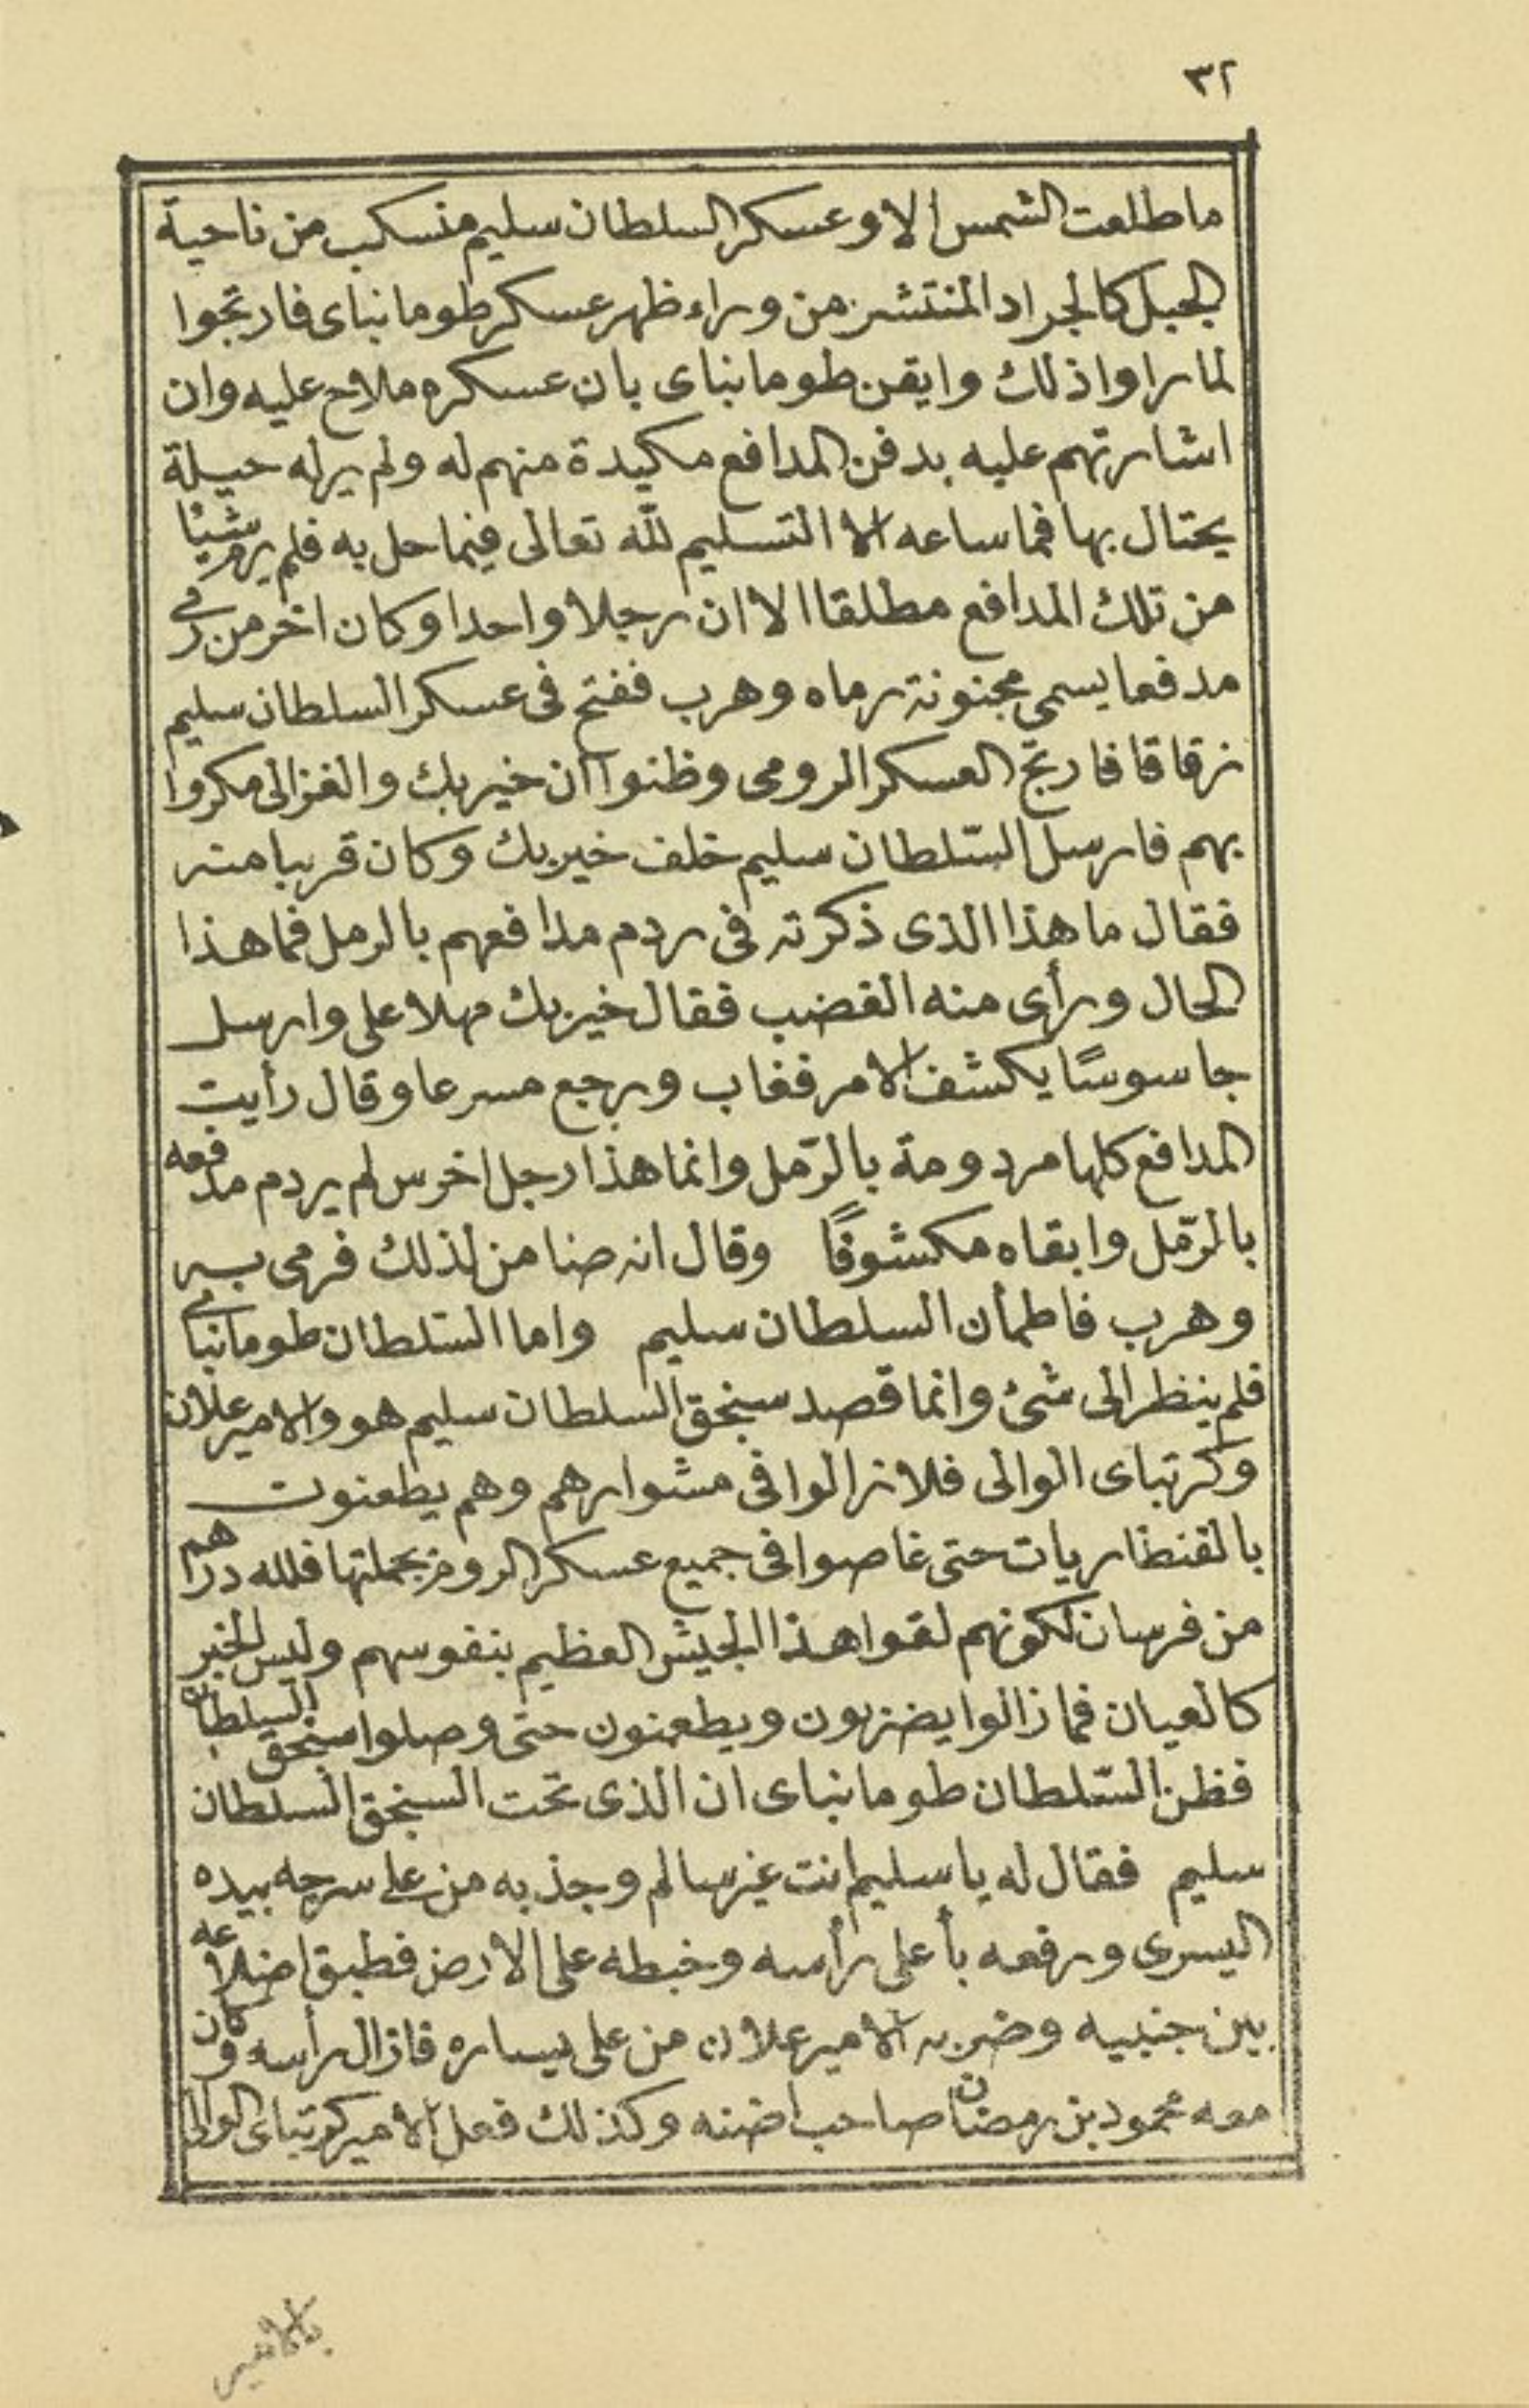 ٣٢
ما طلعت الشمس الا وعسكر السلطان سليم منسكب من ناحية
الجبل كالجراد المنتشر من وراء ظهر عسكر طومانباى فارتجوا
لما راوا ذلك وايقن طومانباى بان عسكره ملاح عليه وان
اشارتهم عليه بدفن المدافع مكيدة منهم له ولم ير له حيلة
يحتال بها فما ساعه الا التسليم لله تعالى فيما حل به فلم يرم شيئا
من تلك المدافع مطلقا الا ان رجلا واحدا وكان اخر من رمى
مدفعا يسمى مجنونة رماه وهرب ففتح فى عسكر السلطان سليم
زقاقا فارتج العسكر الرومى وظنوا ان خير بك والغزالى مكروا
بهم فارسل السّلطان سليم خلف خير بك وكان قريبا منه
فقال ما هذا الذى ذكرته فى ردم مدافعهم بالرمل فما هذا
الحال ورأى منه الغضب فقال خير بك مهلا على وارسل
جاسوسًا يكشف الامر فغاب ورجع مسرعا وقال رأيت
المدافع كلها مردومة بالرّمل وانما هذا رجل اخرس لم يردم مدفعه
بالرّمل وابقاه مكشوفًا وقال انه ضنا من لذلك فرمى به
وهرب فاطمأن السلطان سليم واما السّلطان طومانباى
فلم ينظر الى شئ وانما قصد سنجق السلطان سليم هو والامير علان
وكرتباى الوالى فلا زالوا فى مشوارهم وهم يطعنون
بالقنطاريات حتى غاصوا فى جميع عسكر الروم بجملتها فلله درهم
من فرسان لكونهم لقوا هذا الجيش العظيم بنفوسهم وليس الخبر
كالعيان فما زالوا يضربون ويطعنون حتى وصلوا سنجق السلطان
فظن السّلطان طومانباى ان الذى تحت السنجق السلطان
سليم فقال له يا سليم انت غير سالم وجذبه من على سرجه بيده
اليسرى ورفعه بأعلى رأسه وخبطه على الارض فطبق اضلاعه
بين جنبيه وضربه الامير علان من على يساره فازال رأسه وكان
معه محمود بن رمضان صاحب اضنه وكذلك فعل الامير كرتباى الوالى
بالامير